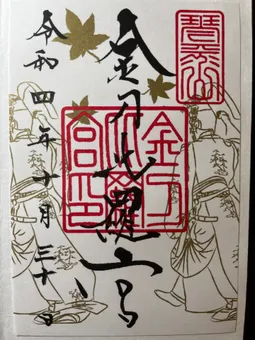 金刀比羅宮
金刀比羅宮印
令和四年十月三十日